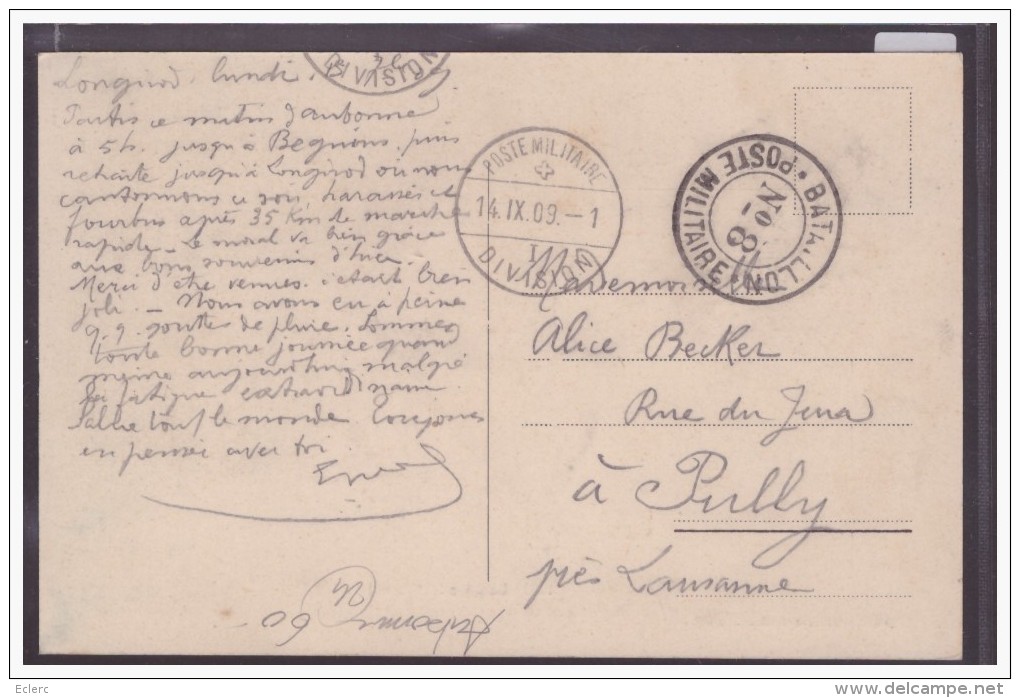 Longirod, lundi.
Partis ce matin d'aubonne
à 5h. jusqu'à Begnins, puis
retraite jusqu'à Longirod où nous
cantonnons ce soir, harassés et
fourbus après 35 Km de marche
rapide – Le moral va bien grâce
aux bons souvenirs d'hier.
Merci d'être venues. c'était bien
joli. – Nous avons eu à peine
q.q. gouttes de pluie. Somme
toute bonne journée quand
même aujourd'hui malgré
la fatigue extraordinaire
Salue tout le monde. toujours
en pensée avec toi.
DIVISION
POSTE MILITAIRE
14.IX.09.–1
I
DIVISION
BATAILLON
No 8
POSTE MILITAIRE
Mademoiselle
Alice Becker
Rue du Jura
à Pully
près Lausanne
24
60
Eclerc
delcampe.net